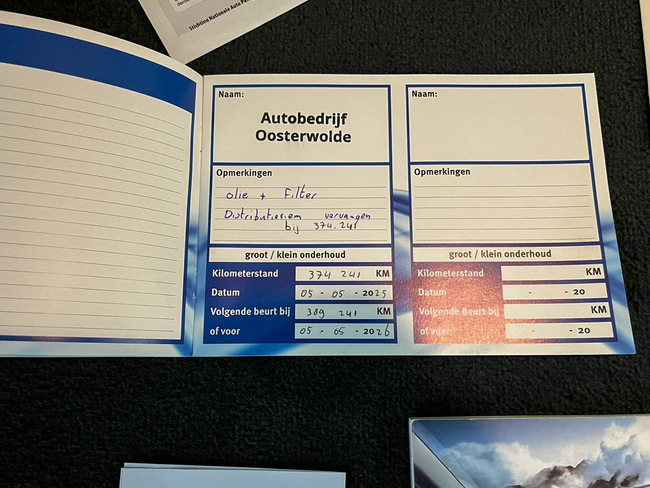 Stichting Nationale Auto Pas
Naam:
Autobedrijf
Oosterwolde
Opmerkingen
olie + Filter
Distributieriem vervangen
bij 374.241
groot / klein onderhoud
Kilometerstand 374 241 KM
Datum 05 - 05 - 2025
Volgende beurt bij 389 241 KM
of voor 05 - 05 - 2026
Naam:
Opmerkingen
groot / klein onderhoud
Kilometerstand KM
Datum - - 20
Volgende beurt bij KM
of voor - - 20